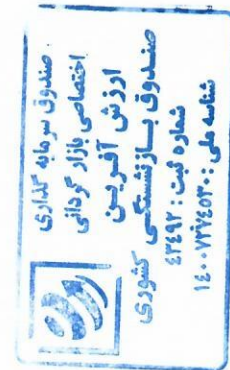 صندوق سرمایه گذاری
اختصاصی بازار گردانی
ارزش آفرین
صندوق بازنشستگی کشوری
شماره ثبت : ٤٣٤٩٢
شناسه ملی : ١٤٠٠٧٢٧٤٥٣٠